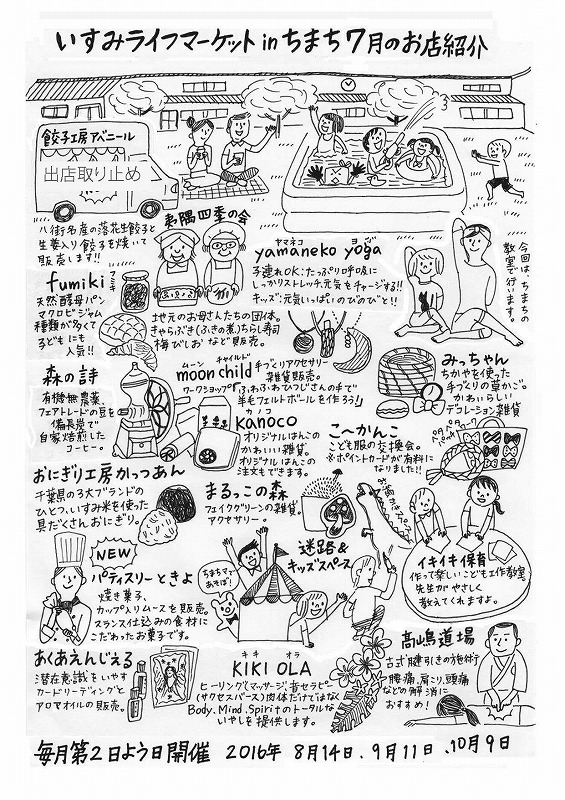 いすみライフマーケットinちまち7月のお店紹介
餃子工房アベニール
出店取り止め
八街名産の落花生餃子と
生姜入り餃子を焼いて
販売します!!
夷隅四季の会
地元のお母さんたちの団体。
きゃらぶき(ふきの煮)ちらし寿司
梅びしおなど販売。
ヤマネコ ヨガ
yamaneko yoga
子連れOK:たっぷり呼吸に
しっかりストレッチ、元気をチャージする!!
キッズ:元気いっぱいのびのびと!!
今回は、ちまちの
教室で行います。
フミキ
fumiki
天然酵母パン
マクロビジャム
種類が多くて
子どもにも
人気!!
森の詩
有機無農薬、
フェアトレードの豆を
備長炭で
自家焙煎した
コーヒー。
ムーン チャイルド
moon child
手づくりアクセサリー
雑貨販売。
ワークショップ「ふわふわひつじさんの手で
羊毛フェルトボールを作ろう!」
みっちゃん
ちがやを使った
手づくりの草かご。
かわいらしい
デコレーション雑貨
カノコ
kanoco
オリジナルはんこの
かわいい雑貨。
オリジナルはんこの
注文もできます。
こ〜かんこ
こども服の交換会。
※ポイントカードが有料に
なりました!!
おにぎり工房かっつあん
千葉県の3大ブランドの
ひとつ、いすみ米を使った
具だくさんおにぎり。
まるっこの森
フェイクグリーンの雑貨。
アクセサリー。
NEW
パティスリーときよ
焼き菓子、
カップ入りムースを販売。
フランス仕込みの食材に
こだわったお菓子です。
迷路&
キッズスペース
ちまちマで
あそぼ!
イキイキ保育
作って楽しいこども工作教室。
先生がやさしく
教えてくれますよ。
あくあえんじぇる
潜在意識をいやす
カードリーディングと
アロマオイルの販売。
キキ オラ
KIKI OLA
ヒーリング(マッサージ、音セラピー
(サクセスパース)肉体だけではなく
Body、Mind、Spiritのトータルな
いやしを提供します。
高嶋道場
古式腱引きの施術
腰痛、肩こり、頭痛
などの解消に
おすすめ!
毎月第2日よう日開催 2016年 8月14日、9月11日、10月9日